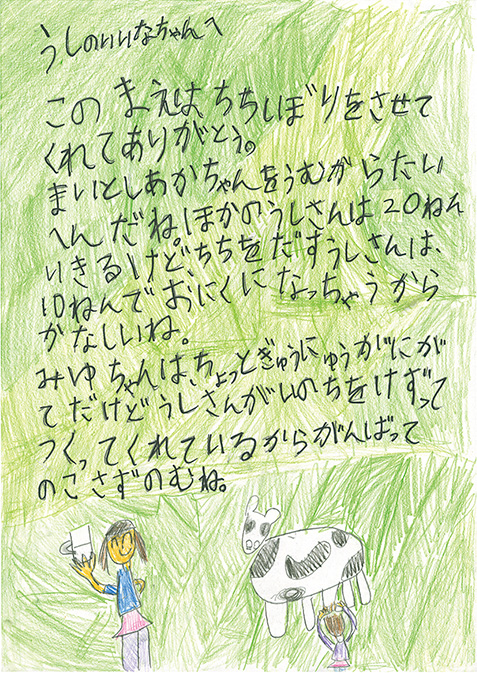 うしのいいなちゃんへ
このまえは、ちちしぼりをさせて
くれてありがとう。
まいとしあかちゃんをうむからたい
へんだね。ほかのうしさんは20ねん
いきるけど、ちちをだすうしさんは、
10ねんでおにくになっちゃうから
かなしいね。
みゆちゃんは、ちょっとぎゅうにゅうがにが
てだけどうしさんがいのちをけずって
つくってくれているからがんばって
のこさずのむね。